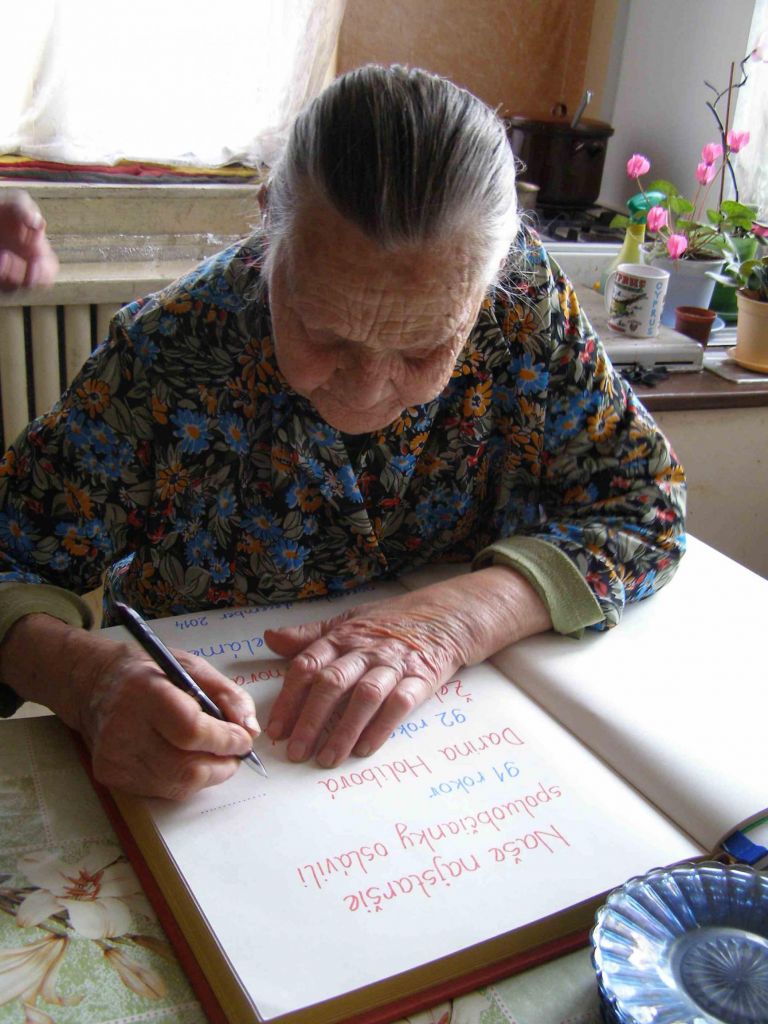 Naše najstaršie
spoluobčianky oslávili
91 rokov
Darina Holibová
92 roko
Žel
nová
eláme
december 2014
CYPRUS